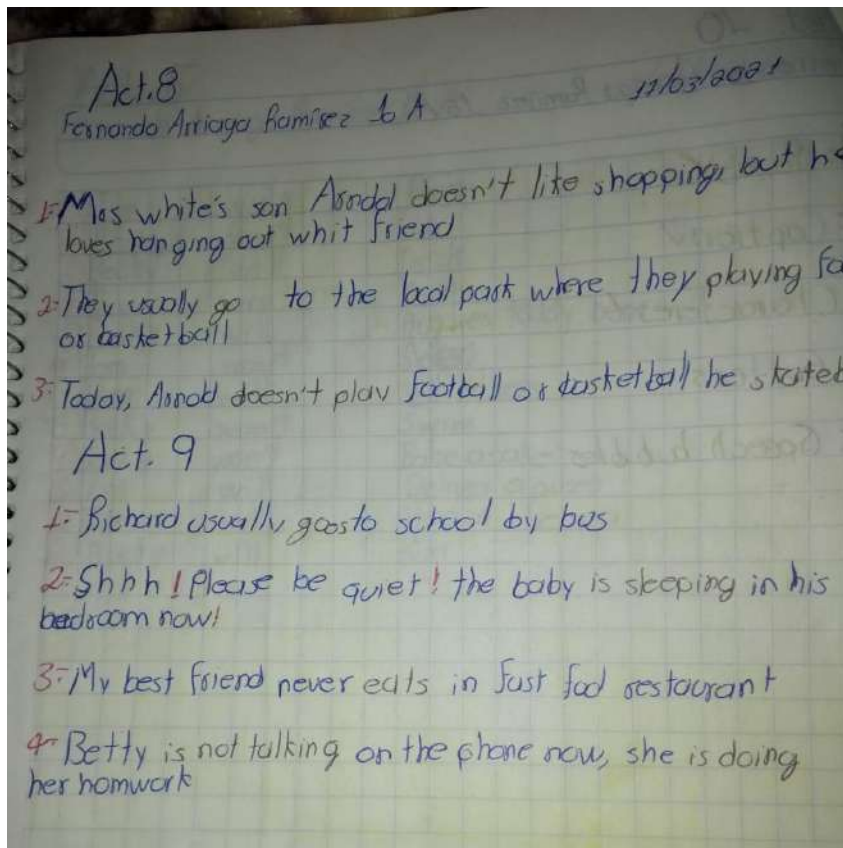 Act.8
11/03/2021
Fernando Arriaga Ramírez 1o A
1:-Mos white's son Arnold doesn't like shopping, but h
loves hanging out whit friend
2:-They usually go to the local park where they playing fo
or basketball
3:-Today, Arnold doesn't play football or basketball he skated
Act. 9
1:-Richard usually goesto school by bus
2:-Shhh! Please be quiet! the baby is sleeping in his
bedroom now!
3:-My best friend never eats in fast food restaurant
4-Betty is not talking on the phone now, she is doing
her homwork